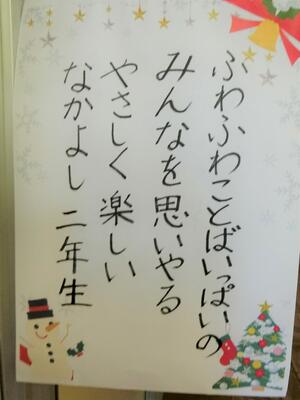 ふわふわことばいっぱいの
みんなを思いやる
やさしく楽しい
なかよし二年生